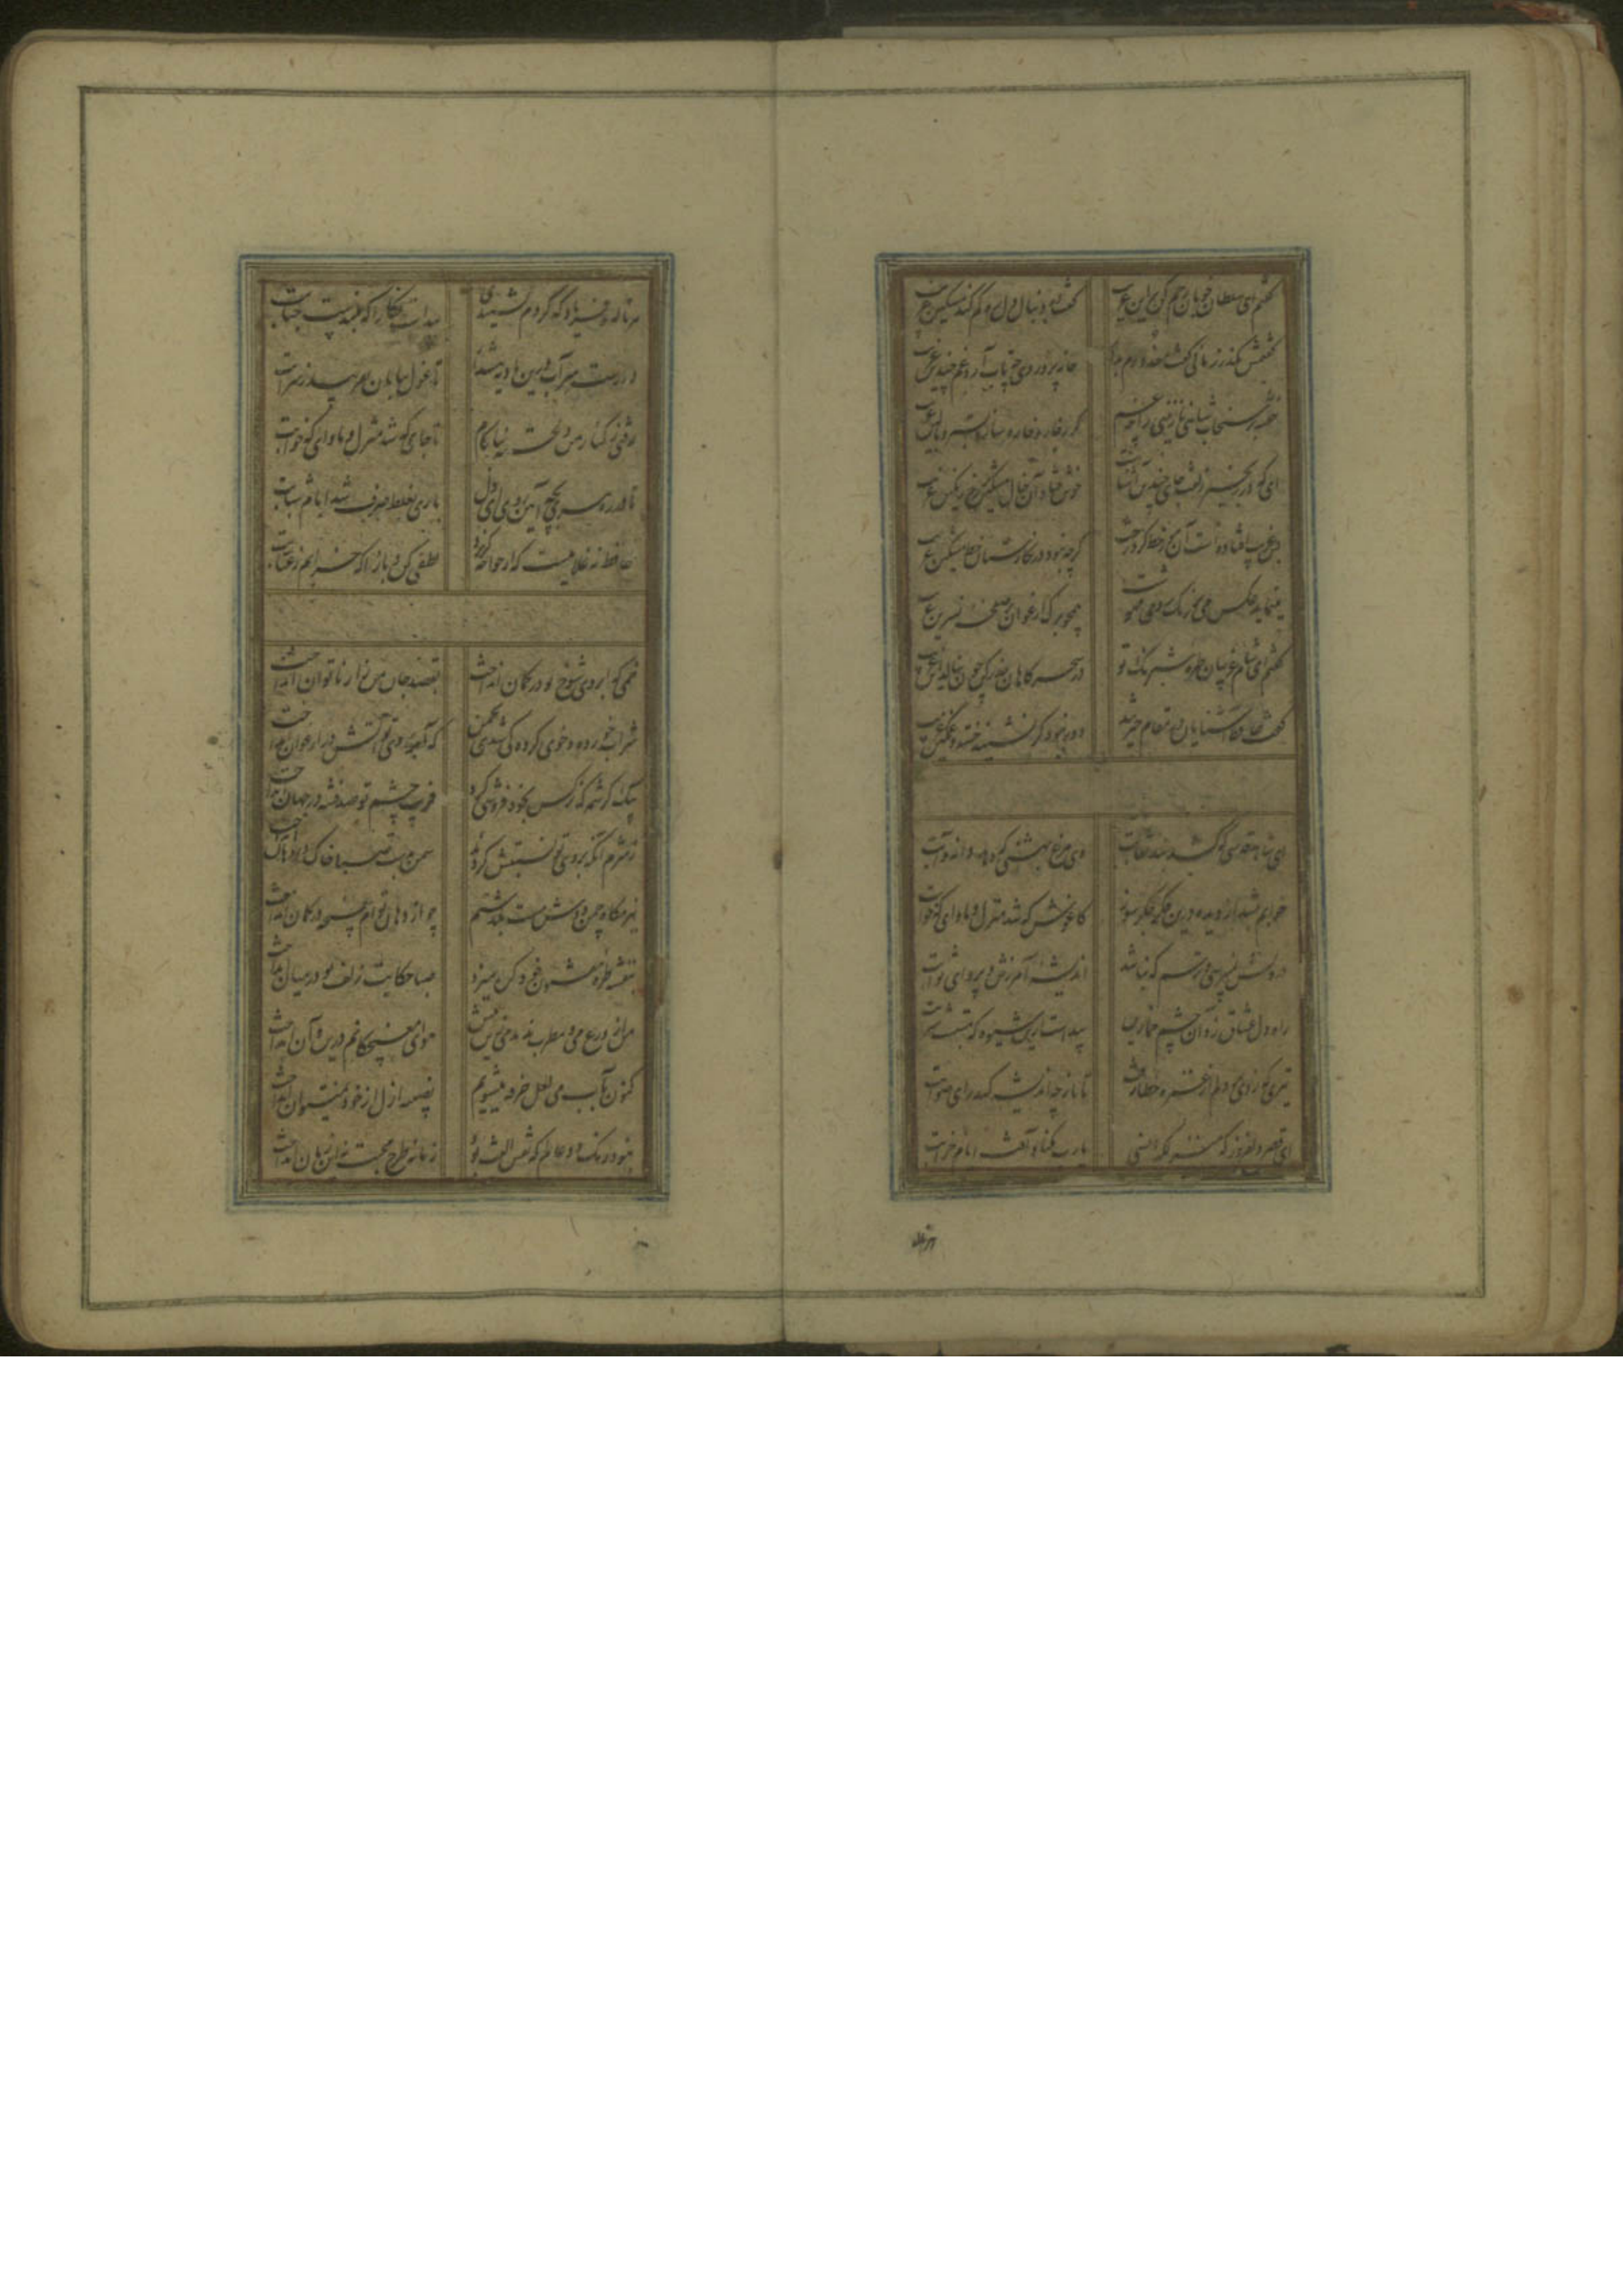 گفتم ای سلطان خوبان رحم کن بر این غریب
گفت در دنبال دل ره گم کند مسکین غریب
گفتمش مگذر زمانی گفت معذورم بدار
خانه پروردی چه تاب آرد غم چندین غریب
خفته بر سنجاب شاهی نازنینی را چه غم
گر ز خار و خاره سازد بستر و بالین غریب
ای که در زنجیر زلفت جای چندین آشناست
خوش فتاد آن خال مشکین بر رخ رنگین غریب
بس غریب افتاده است آن مور خط گرد رخت
گرچه نبود در نگارستان خط مشکین غریب
مینماید عکس می در رنگ روی مهوشت
همچو برگ ارغوان بر صفحه نسرین غریب
گفتم ای شام غریبان طره شبرنگ تو
در سحرگاهان حذر کن چون بنالد این غریب
گفت حافظ آشنایان در مقام حیرتند
دور نبود گر نشیند خسته و غمگین غریب
ای شاهد قدسی که کشد بند نقابت
وی مرغ بهشتی که دهد دانه و آبت
خوابم بشد از دیده درین فکر جگرسوز
کاغوش که شد منزل و ماوای که خوابت
درویش نمیپرسی و ترسم که نباشد
اندیشه آمرزش و پروای ثوابت
راه دل عشاق زد آن چشم خماری
پیداست ازین شیوه که مستست شرابت
تیری که زدی بر دلم از غمزه خطا رفت
تا باز چه اندیشه کند رای صوابت
ای قصر دلفروز که منزلگه انسی
یارب مکناد آفت ایام خرابت
هر ناله و فریاد که کردم نشنیدی
پیداست نگارا که بلندست جنابت
دورست سر آب درین بادیه هشدار
تا غول بیابان نفریبد ز سرابت
رفتی ز کنار من دلخسته بناکام
تا جای که شد منزل و ماوای که خوابت
تا در ره پیری بچه آیین روی ای دل
باری بغلط صرف شد ایام شبابت
حافظ نه غلامیست که از خواجه گریزد
لطفی کن و بازآ که خرابم ز عتابت
خمی که ابروی شوخ تو در کمان انداخت
بقصد جان من زار ناتوان انداخت
شراب خورده و خوی کرده کی شدی بچمن
که آب روی تو آتش در ارغوان انداخت
بیک کرشمه که نرگس بخود فروشی کرد
فریب چشم تو صد فتنه در جهان انداخت
ز شرم آنکه بروی تو نسبتش کردند
سمن بدست صبا خاک در دهان انداخت
ببزمگاه چمن دوش مست بگذشتم
چو از دهان توام غنچه در گمان انداخت
بنفشه طره مفتول خود گره میزد
صبا حکایت زلف تو در میان انداخت
من از ورع می و مطرب ندیدمی زین پیش
هوای مغبچگانم درین و آن انداخت
کنون بآب می لعل خرقه میشویم
نصیبه ازل از خود نمیتوان انداخت
نبود رنگ دو عالم که نقش الفت بود
زمانه طرح محبت نه این زمان انداخت